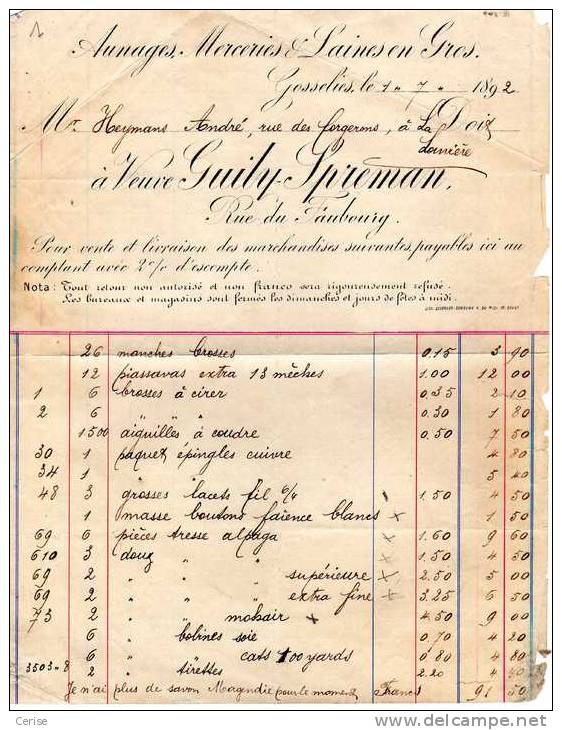 Aunages, Merceries & Laines en Gros.
Gosselies, le 1 " 7 " 1892
Mr. Heymans André, rue des forgerons, à La Doiz
Lannière
à Veuve Guily-Spreman,
Rue du Faubourg.
Pour vente et livraison des marchandises suivantes, payables ici au
comptant avec 2% d'escompte.
Nota: Tout retour non autorisé et non franco sera rigoureusement refusé.
Les bureaux et magasins sont fermés les dimanches et jours de fêtes à midi.
26 manches brosses 0.15 3 90
12 piassavas extra 13 mêches 1.00 12 00
1 6 brosses à cirer 0.35 2 10
2 6 " " " 0.30 1 80
1500 aiguilles à coudre 0.50 7 50
30 1 paquet épingles cuivre 4 80
34 1 " " " 5 40
48 3 grosses lacets fil 6/4 1.50 4 50
1 masse boutons faïence blancs x 1 50
69 6 pièces tresse alpaga 1.60 9 60
610 3 douz " " 1.50 4 50
69 2 " " " supérieure x 2.50 5 00
69 2 " " " extra fine x 3.25 6 50
73 2 " " mohair x 4.50 9 00
6 " bobines soie 0.70 4 20
6 " " cats 100 yards 0.80 4 80
3503 " 8 2 " tirettes 2.20 4 40
Je n'ai plus de savon Magndie pour le moment Francs 91 50
Cerise
www.delcampe.net